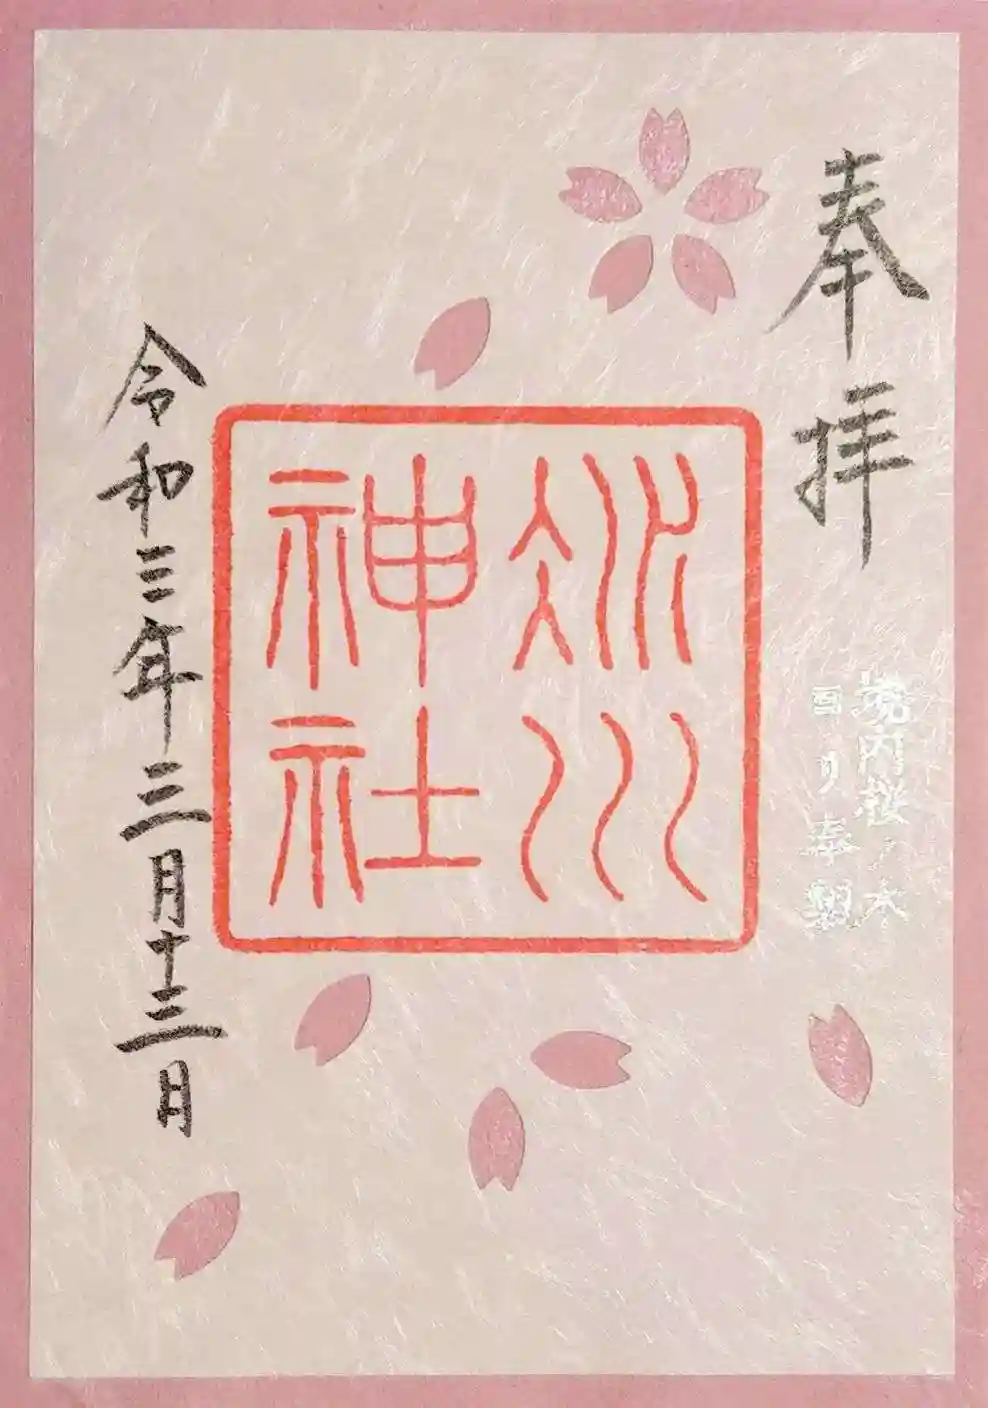 奉拝
境内桜ノ木
ヨリ奉製
冰川
神社
令和三年三月十三日